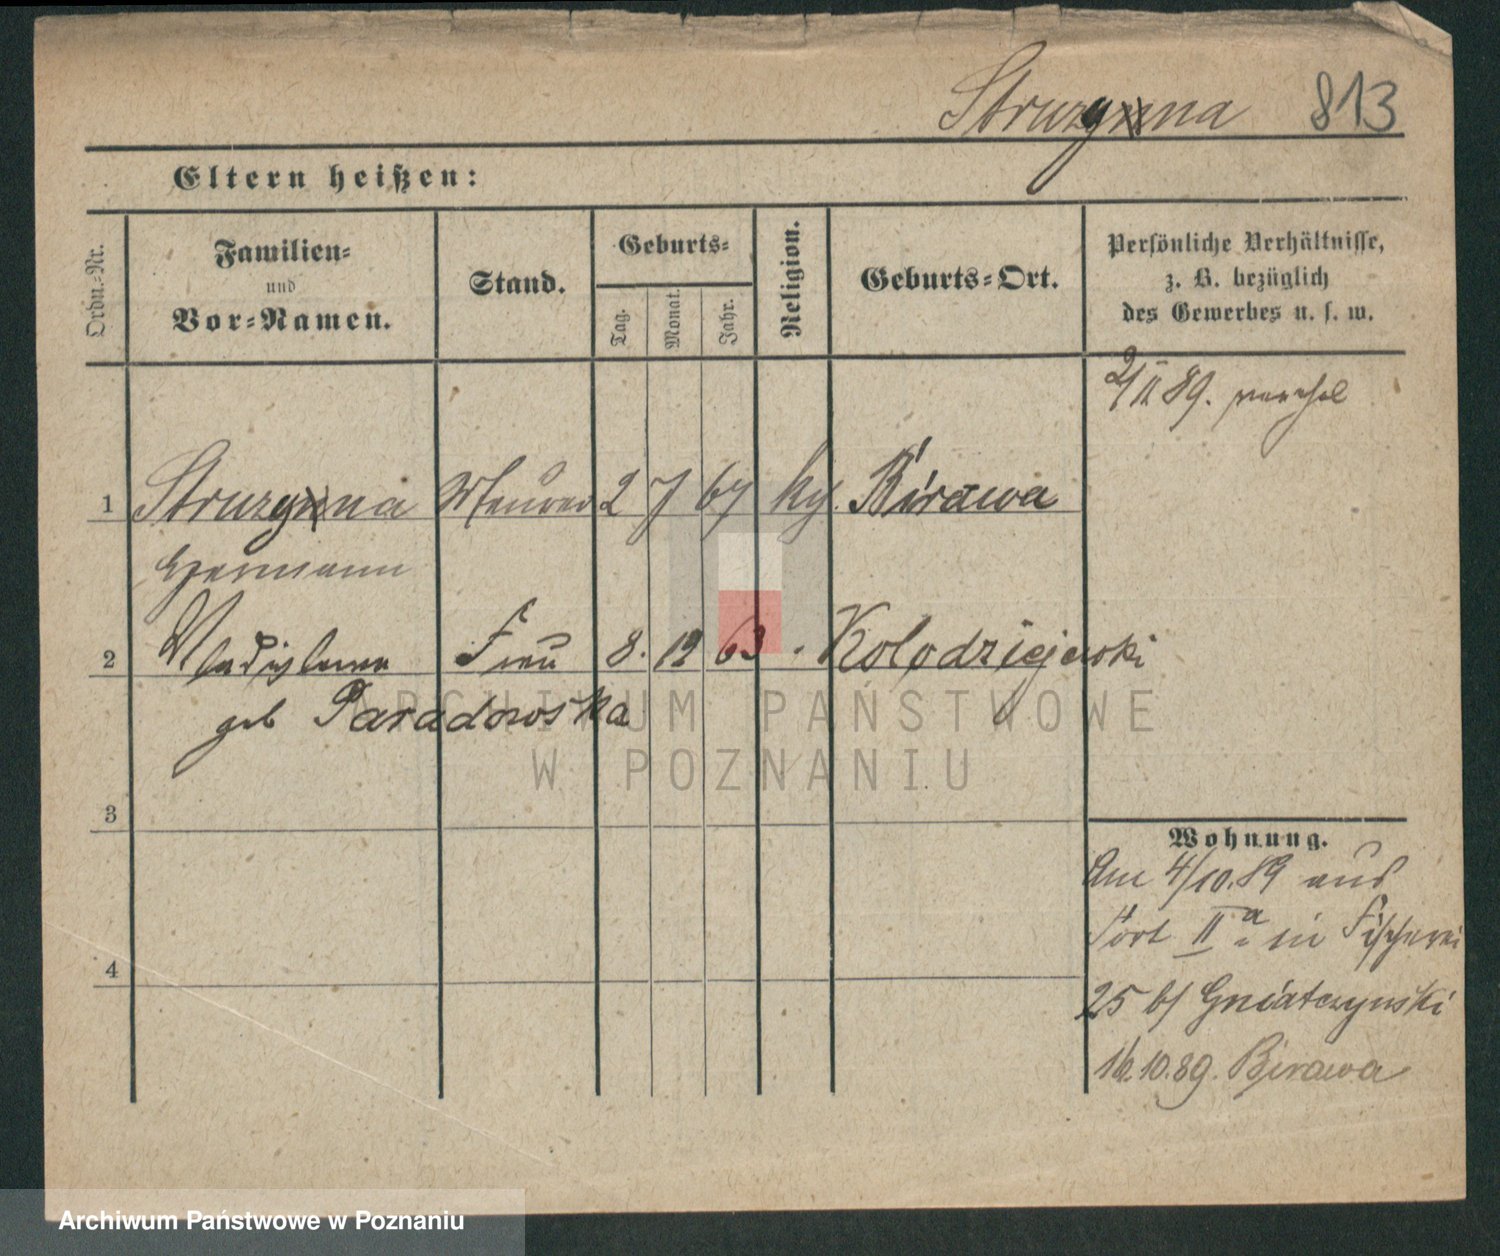 Struzyna 813
Eltern heißen:
Ordn.-Nr.
Familien-
und
Vor-Namen.
Stand.
Geburts-
Tag.
Monat.
Jahr.
Religion.
Geburts-Ort.
Persönliche Verhältnisse,
z. B. bezüglich
des Gewerbes u. s. w.
2/II 89.
1 Struzyna Maurer 2 7 67 kg. Birawa
Hermann
2 Wladislawa Frau 8. 12 63 Kolodziejewski
geb Paradowska
ARCHIWUM PAŃSTWOWE
W POZNANIU
3
Wohnung.
Am 4/10.89 aus
Fort II a in Fischerei
4
25 b/ Gniatczynski
16.10.89. Birawa
Archiwum Państwowe w Poznaniu